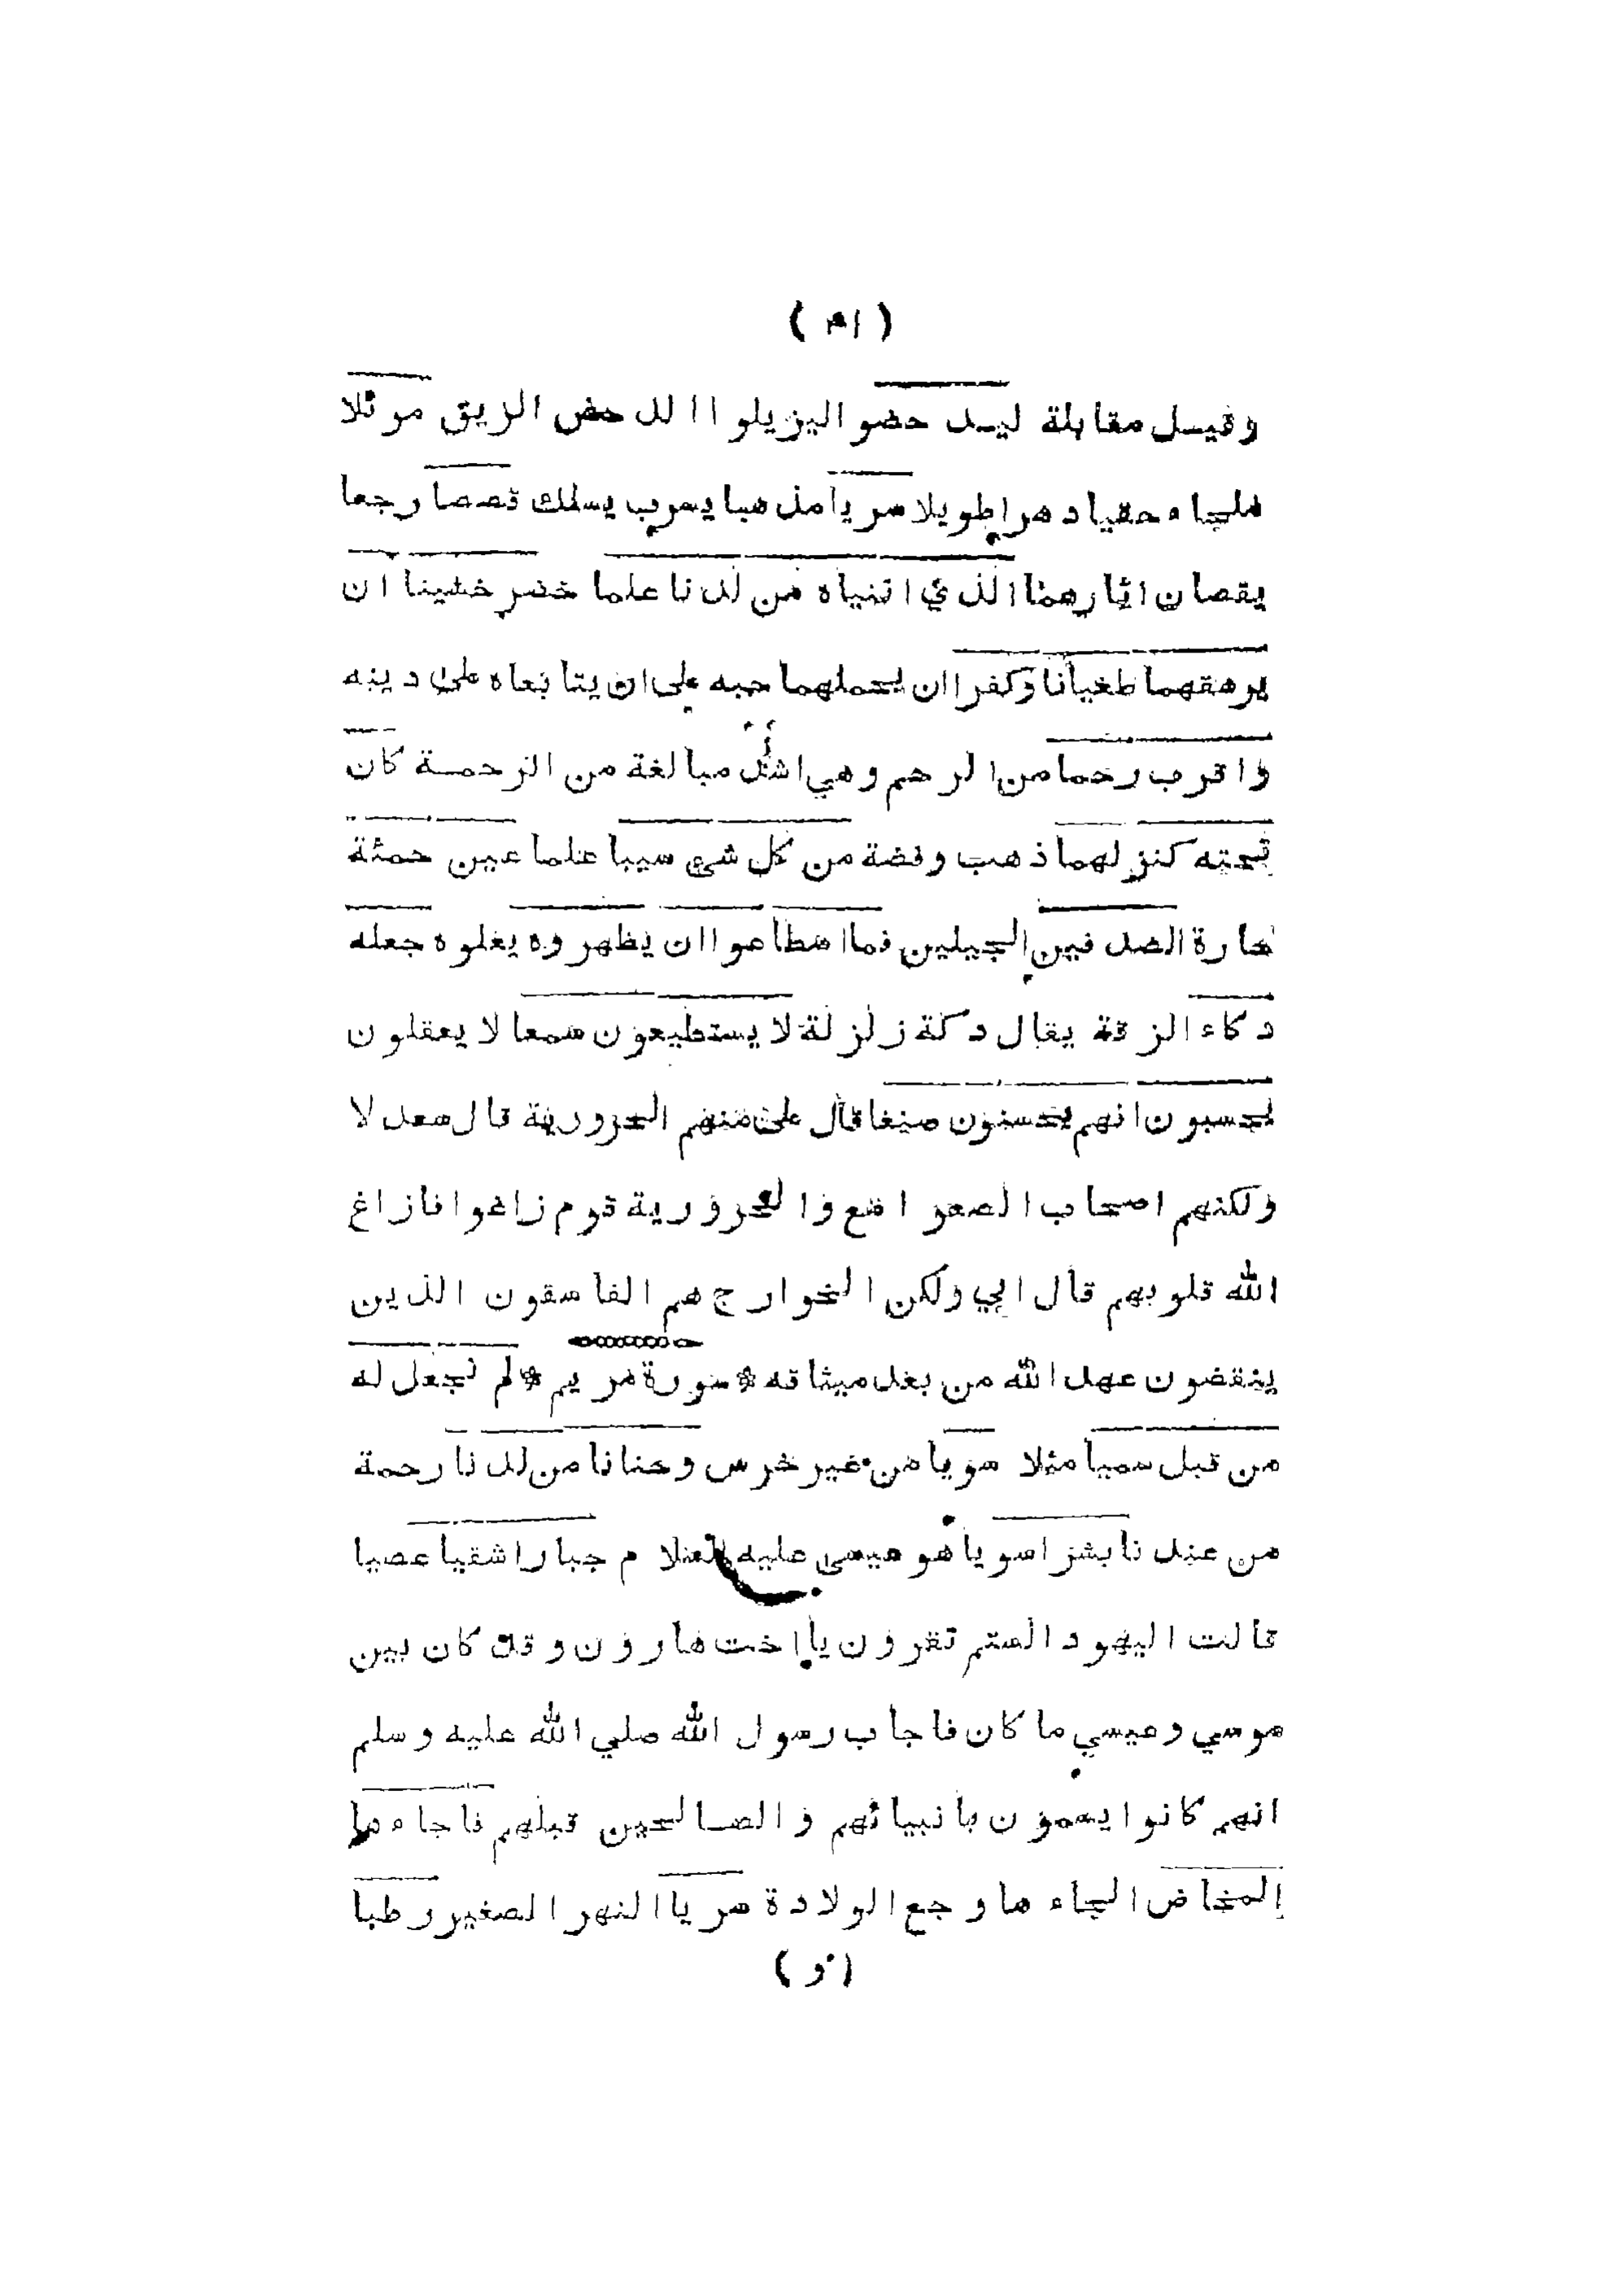 ( ٣١ )
وقيل مقابلة ليد حضوا ليزيلوا الدحض الزيق موئلا
ملجاء حقبا دهرا طويلا سربا مذهبا يسرب يسلك قصصا رجعا
يقصان اثارهما الذي اتيناه من لدنا علما خضر خشينا ان
يرهقهما طغيانا وكفرا ان يحملهما حبه على ان يتابعاه على دينه
واقرب رحما من الرحم وهي اشد مبالغة من الرحمة كان
تحته كنز لهما ذهب وفضة من كل شي سببا علما عين حمئة
حارة الصدفين الجبلين فما اسطاعوا ان يظهروه يعلوه جعله
دكاء الزقة يقال دكة زلزلة لا يستطيعون سمعا لا يعقلون
يحسبون انهم يحسنون صنعا قال على منهم الحرورية قال سعد لا
ولكنهم اصحاب الصعوامع والحرورية قوم زاغوا فازاغ
الله قلوبهم قال ابي ولكن الخوارج هم الفاسقون الذين
ينقضون عهد الله من بعد ميثاقه * سورة مريم * لم نجعل له
من قبل سميا مثلا سويا من غير خرس وحنانا من لدنا رحمة
من عندنا بشرا سويا هو عيسى عليه السلام جبارا شقيا عصيا
قالت اليهود الستم تقرؤن يا اخت هارون وقد كان بين
موسي وعيسي ما كان فاجاب رسول الله صلي الله عليه وسلم
انهم كانوا يسمون بانبيائهم والصالحين قبلهم فاجاءها
المخاض الجاءها وجع الولادة سريا النهر الصغير رطبا
( و )